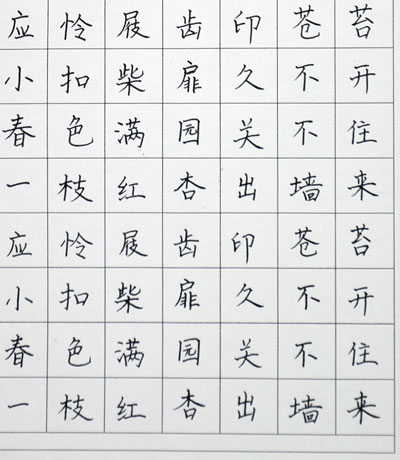 应怜屐齿印苍苔
小扣柴扉久不开
春色满园关不住
一枝红杏出墙来
应怜屐齿印苍苔
小扣柴扉久不开
春色满园关不住
一枝红杏出墙来